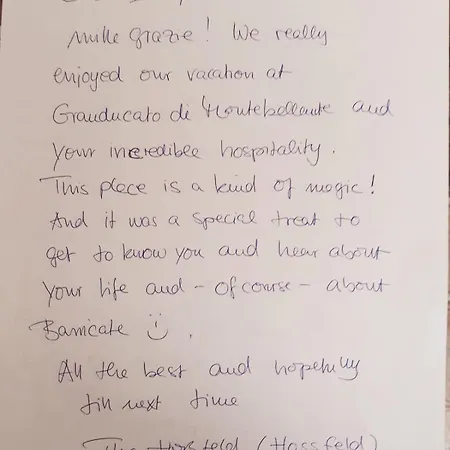 mille grazie! We really
enjoyed our vacation at
Granducato di Montebellante and
your incredible hospitality.
This place is a kind of magic!
And it was a special treat to
get to know you and hear about
your life and - of course - about
Barricate
All the best and hopefully
till next time
(Hossfeld)